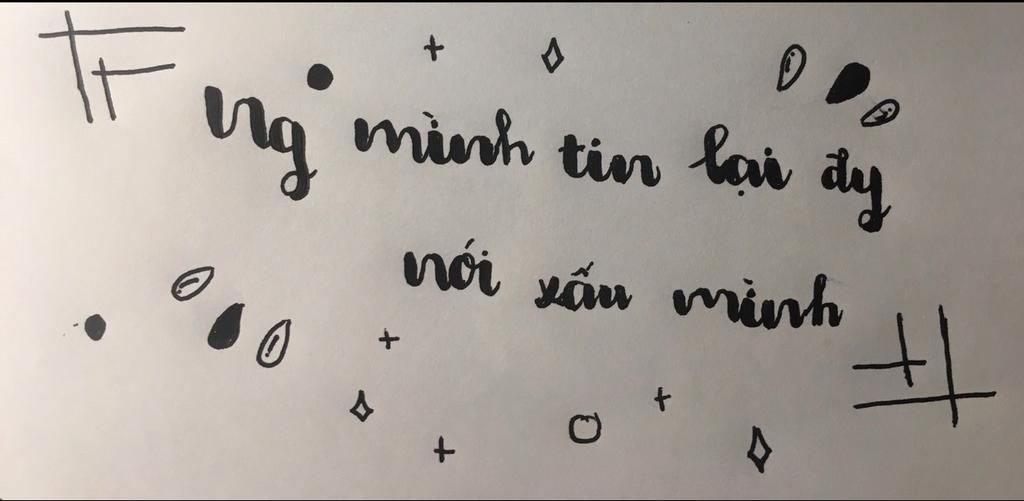 Ng mình tin lại đy
nói xấu mình